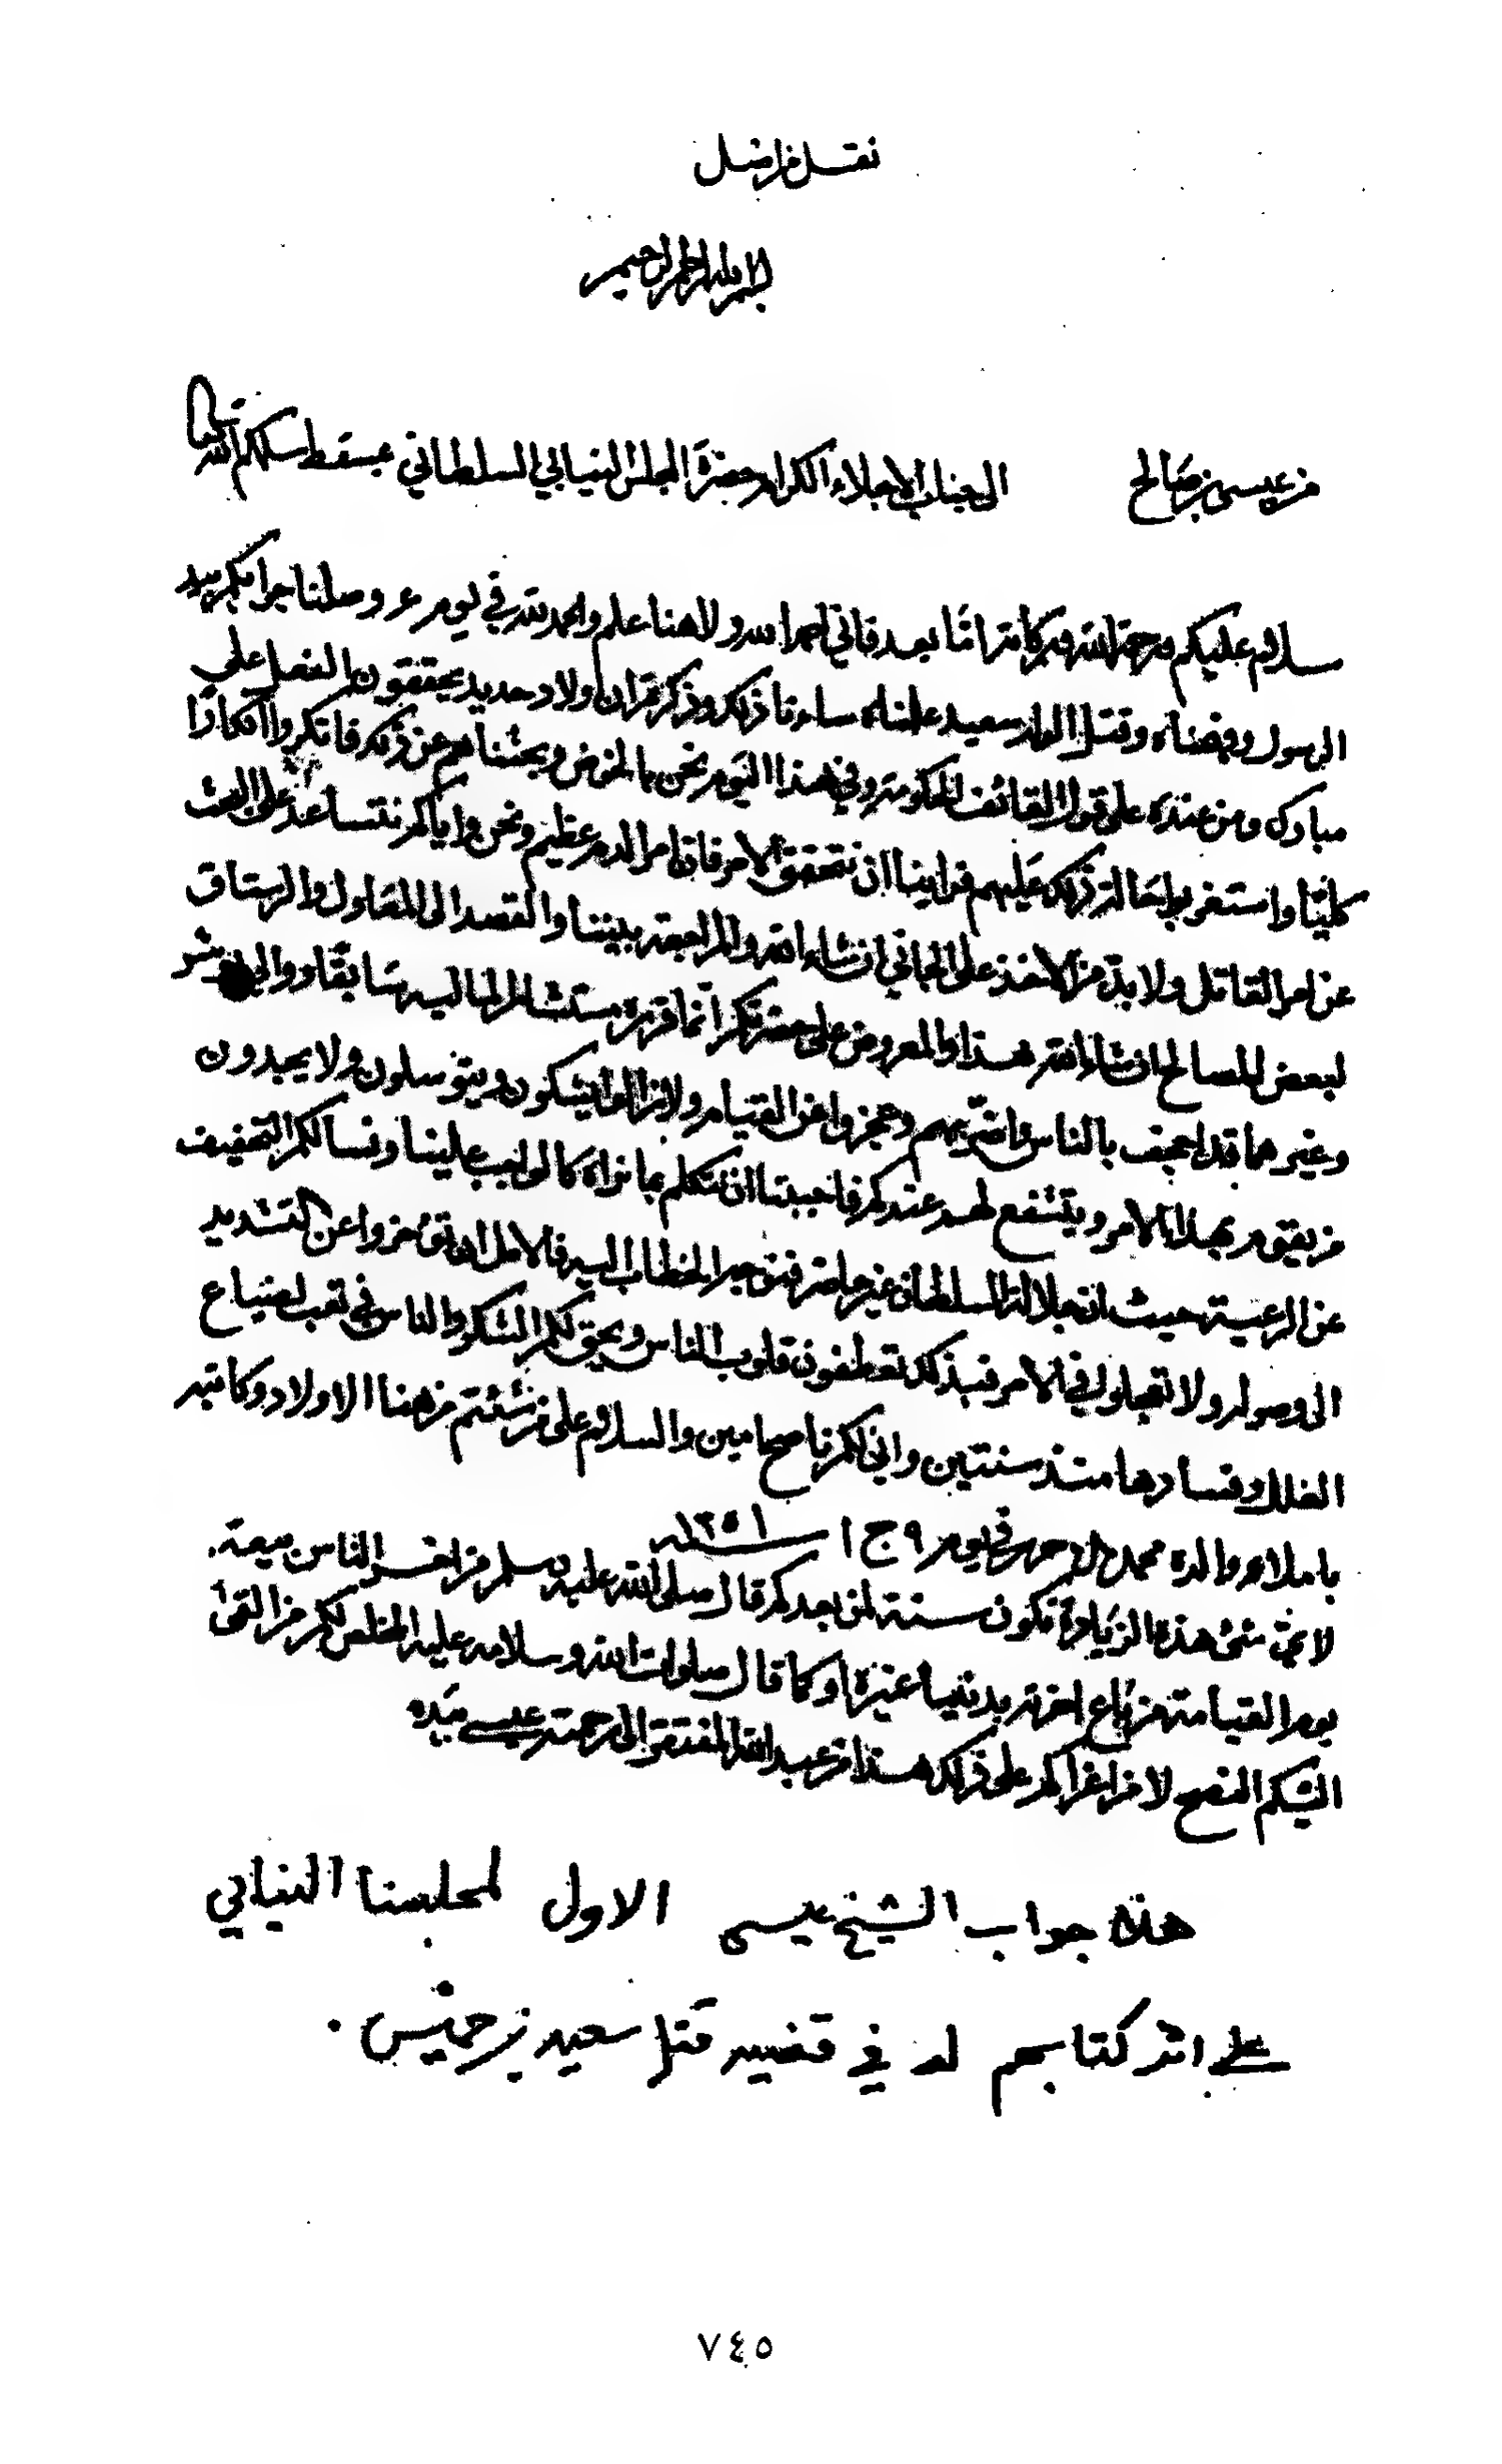 نقل من اصل
بسم الله الرحمن الرحيم
من عيسى بن صالح الى جناب الاجلاء الكرام حضرة المجلس النيابي السلطاني بمسقط سلمكم الله تعالى
سلام عليكم ورحمة الله وبركاته اما بعد فاني احمد الله ولا هنا علم والحمد لله في يوم وصلنا جوابكم بيد
الرسول وفهمناه وقتل الولد سعيد علمناه ساءنا ذلك وذكرتم ان اولاد حديد يحققون الفعل على
مبارك ومن عنده على قول القائف الحكومة وفي هذا اليوم نحن بالمخوض وبحثناهم عن ذلك فانكروا انكارًا
كليّا واستغربوا احالة ذلك عليهم فراينا ان نتحقق الامر فان امر الدم عظيم ونحن واياكم نتساعد على البحث
عن امر القاتل ولا بد من الاخذ على الجاني ان شاء الله والمراجعة بيننا والقصد الى المعاول والرستاق
لبعض المصالح ان شاء الله هذا والمعروض على حضرتكم انما قرره مستشار المالية سابقًا
وغيرها قد اجحف بالناس واضر بهم وعجزوا عن القيام ولا زالوا يشكون ويتوسلون ولا يجدون
من يقوم بهذا الامر ويتشفع لهم عندكم فاحببنا ان نتكلم بما نراه كالواجب علينا ونسالكم التخفيف
عن الرعية حيث ان جلالة السلطان غير حاضر فنوجه الخطاب اليه فالامل ان توخروا عن التشديد
الى وصوله ولا تعجلوا في الامر فبذلك تعطفون قلوب الناس ويحق لكم الشكر والناس في تعب لضياع
الغلل وفسادها منذ سنتين واني لكم ناصح امين والسلام على من شئتم من هنا الاولاد وكاتبه
باملاء والده في يوم ٩ ج ١ سنة ١٣٥١
لا يخفى هذه الزيادة تكون سنة لمن بعدكم قال صلى الله عليه وسلم من اخسر الناس صفقة
يوم القيامة من باع اخرته بدنيا غيره او كما قال صلوات الله وسلامه عليه المخلص لكم من القى
اليكم النصح لا من اغراكم على ذلك هذا من عبد الله المفتقر الى رحمته عيسى بيده
هذا جواب الشيخ عيسى الاول لمجلسنا النيابي
على اثر كتابهم له في قضية قتل سعيد بن خميس .
٧٤٥